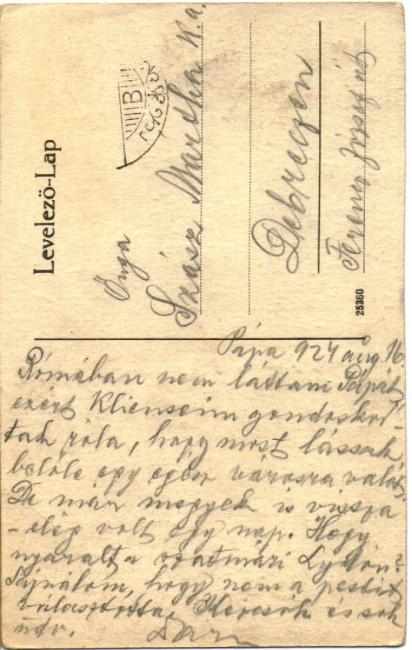 Levelező-Lap
Őnga
Szász Martha k.a.
Debrecen
Ferenc József út
25360
Pápa 924 aug 16.
Rómában nem láttam Pápát
ezért klienseim gondoskod-
tak róla, hogy most lássak
belőle egy egész városra valót.
De már megyek is vissza
- elég volt egy nap. Hogy
nyaralt a szatmári Lydón?
Sajnálom, hogy nem a pestit
választotta. Kézcsók és sok
üdv.